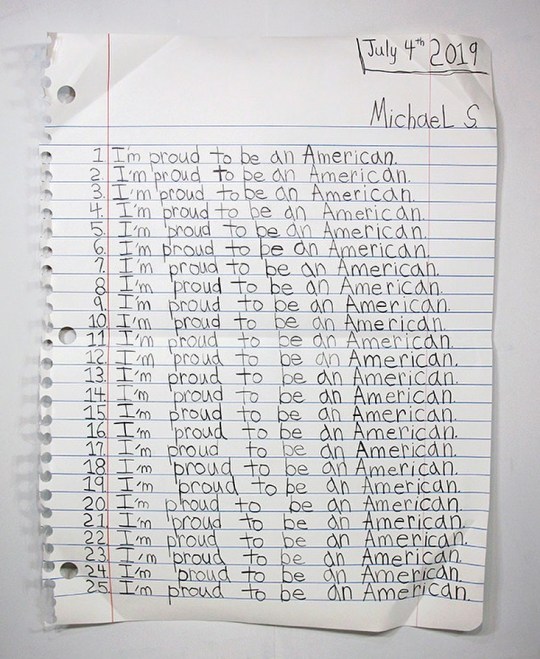 July 4th 2019
MichaeL S.
1. I'm proud to be an American.
2. I'm proud to be an American.
3. I'm proud to be an American.
4. I'm proud to be an American.
5. I'm proud to be an American.
6. I'm proud to be an American.
7. I'm proud to be an American.
8. I'm proud to be an American.
9. I'm proud to be an American.
10. I'm proud to be an American.
11. I'm proud to be an American.
12. I'm proud to be an American.
13. I'm proud to be an American.
14. I'm proud to be an American.
15. I'm proud to be an American.
16. I'm proud to be an American.
17. I'm proud to be an American.
18. I'm proud to be an American.
19. I'm proud to be an American.
20. I'm proud to be an American.
21. I'm proud to be an American.
22. I'm proud to be an American.
23. I'm proud to be an American.
24. I'm proud to be an American.
25. I'm proud to be an American.